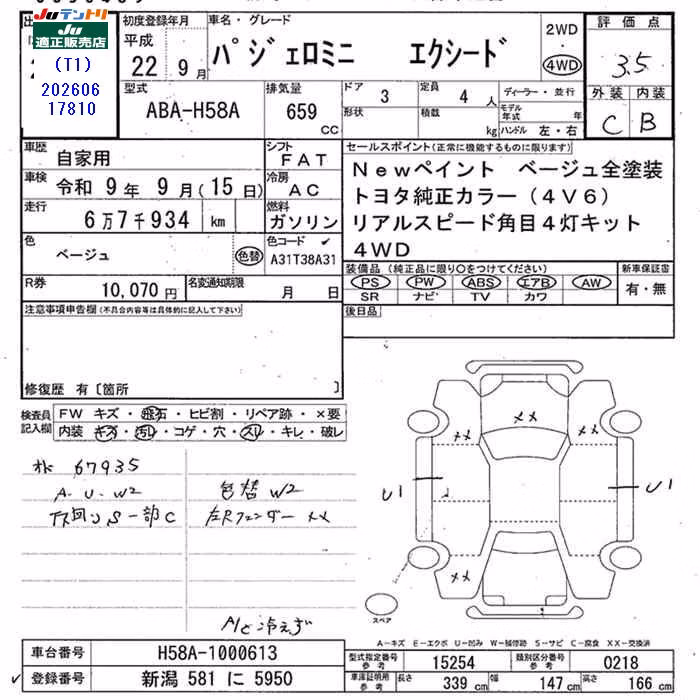 JUテントリ
JU
適正販売店
(T1)
202606
17810
初度登録年月
平成
22年 9月
車名・グレード
パジェロミニ エクシード
2WD
・
4WD
評価点
3.5
外装 内装
C B
型式
ABA-H58A
排気量
659 CC
ドア 3
定員 4 人
形状
積載 kg
ディーラー・並行
モデル年式 年
ハンドル 左・右
車歴
自家用
シフト
FAT
車検
令和 9年 9月(15日)
冷房
AC
走行
6万7千934 km
燃料
ガソリン
色
ベージュ
色替
色コード
A31T38A31
R券
10,070円
名変通知期限
月 日
セールスポイント(正常に機能するものに限ります)
Newペイント ベージュ全塗装
トヨタ純正カラー(4V6)
リアルスピード角目4灯キット
4WD
装備品(純正品に限り○をつけてください)
PS PW ABS エアB AW
SR ナビ TV カワ
新車保証書
有・無
後日品
注意事項申告欄(不具合内容等は具体的に記入して下さい)
修復歴 有〔箇所 〕
検査員記入欄
FW キズ・飛石・ヒビ割・リペア跡・×要
内装 キズ・汚レ・コゲ・穴・スレ・キレ・破レ
67935
A・U・W2
下回りS一部C
色替W2
左Rフェンダー××
A/C冷えず
××
××
××
U1
U1
××
スペア
A−キズ E−エクボ U−凹み W−補修跡 S−サビ C−腐食 XX−交換済
車台番号
H58A-1000613
登録番号
新潟 581 に 5950
型式指定番号
参考
15254
類別区分番号
参考
0218
車庫証明用
参考
長さ 339cm
幅 147cm
高さ 166cm